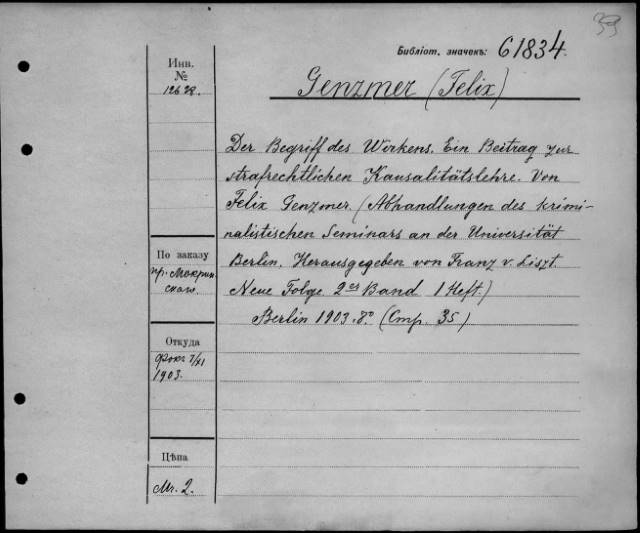 39
Библіот. значекъ: 61834.
Инв.
№
12628.
Genzmer (Felix)
Der Begriff des Wirkens. Ein Beitrag zur
strafrechtlichen Kausalitätslehre. Von
Felix Genzmer (Abhandlungen des krimi-
nalistischen Seminars an der Universität
Berlin. Herausgegeben von Franz v. Liszt
Neue Folge 2er Band 1 Heft.)
Berlin 1903. 8º (Стр. 35)
По заказу
пр. Мокрин
скаго.
Откуда
Фокъ 7/XI
1903.
Цѣна
Mr. 2.